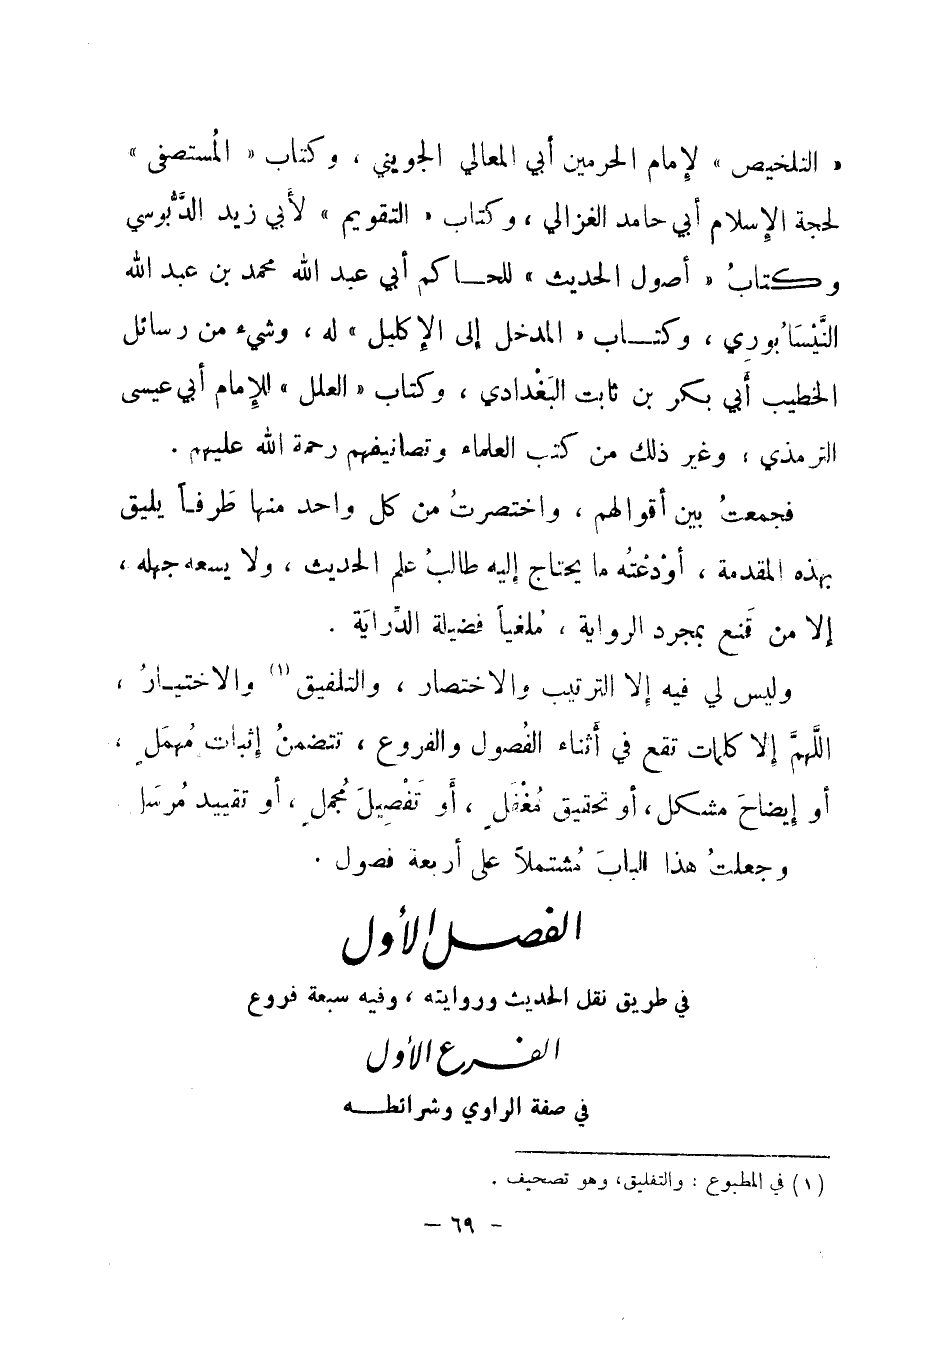 « التلخيص » لإمام الحرمين أبي المعالي الجويني ، وكتاب « المُستصفى »
لحجة الإسلام أبي حامد الغزالي ، وكتاب « التقويم » لأبي زيد الدَّبُّوسي
وكتابُ « أصول الحديث » للحاكم أبي عبد الله محمد بن عبد الله
النَّيْسَابُورِي ، وكتاب « المدخل إلى الإكليل » له ، وشيء من رسائل
الخطيب أبي بكر بن ثابت البَغْدادي ، وكتاب « العلل » للإمام أبي عيسى
الترمذي ، وغير ذلك من كتب العلماء وتصانيفهم رحمة الله عليهم .
فجمعتُ بين أقوالهم ، واختصرتُ من كل واحد منها طَرفاً يليق
بهذه المقدمة ، أوْدَعْتُه ما يحتاج إليه طالبُ علم الحديث ، ولا يسعه جهله ،
إلا من قَنع بمجرد الرواية ، مُلغياً فضيلة الدِّرايَة .
وليس لي فيه إلا الترتيب والاختصار ، والتلفيق (١) والاختيارُ ،
اللَّهمَّ إلا كلمات تقع في أثناء الفُصول والفروع ، تتضمنُ إثبات مُهمَلٍ ،
أو إيضاحَ مشكل، أو تحقيق مُغْفَلٍ ، أو تَفْصِيلَ مُجملٍ ، أو تقييد مُرسَل
وجعلتُ هذا البابَ مُشتملاً على أربعة فصول .
الفصل الأول
في طريق نقل الحديث وروايته ، وفيه سبعة فروع
الفرع الأول
في صفة الراوي وشرائطه
(١) في المطبوع : والتفليق، وهو تصحيف .
- ٦٩ -